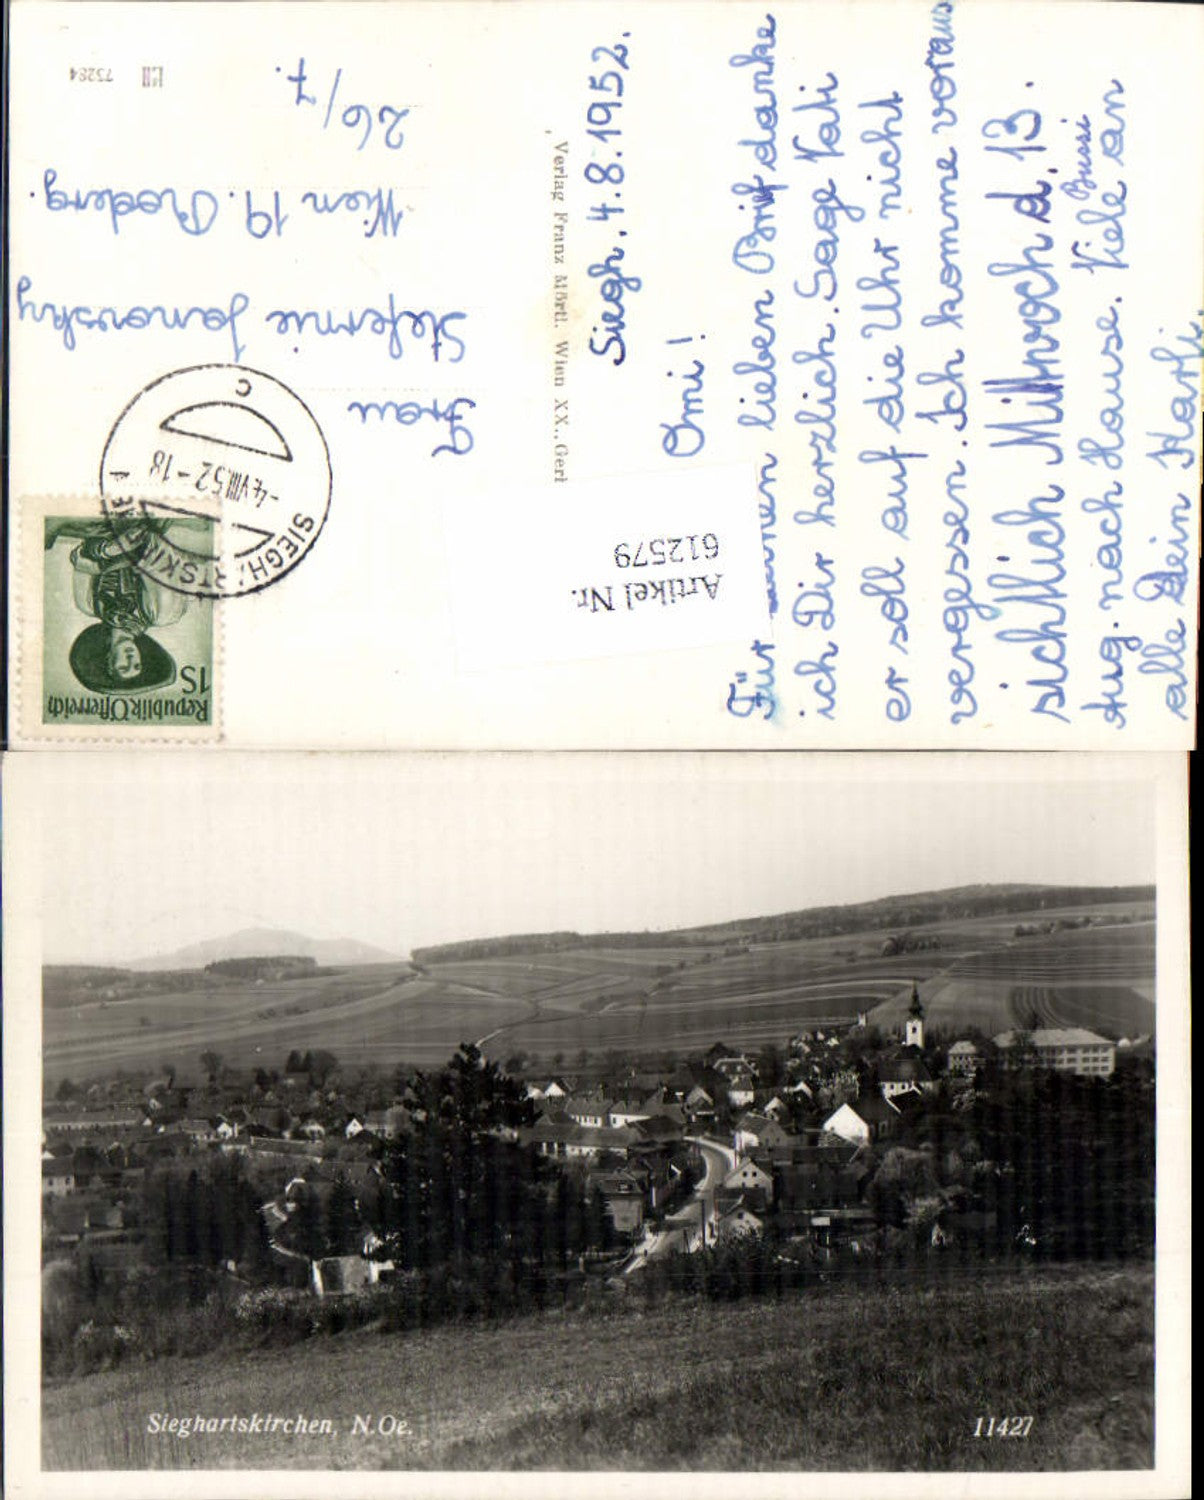 Siegh. 4.8.1952.
Omi!
Für deinen lieben Brief danke
ich Dir herzlich. Sage Vati
er soll auf die Uhr nicht
vergessen. Ich komme voraus
sichtlich Mittwoch d. 13.
Aug. nach Hause. Viele Bussi an
alle Dein Karli.
Verlag Franz Mörtl, Wien XX., Ger
Frau
Stefanie Janovsky
Wien 19.
26/7.
73284
Republik Österreich
1S
SIEGHARTSKIRCHEN
-4.VIII.52-18
C
Artikel Nr.
612579
Sieghartskirchen, N.Oe.
11427